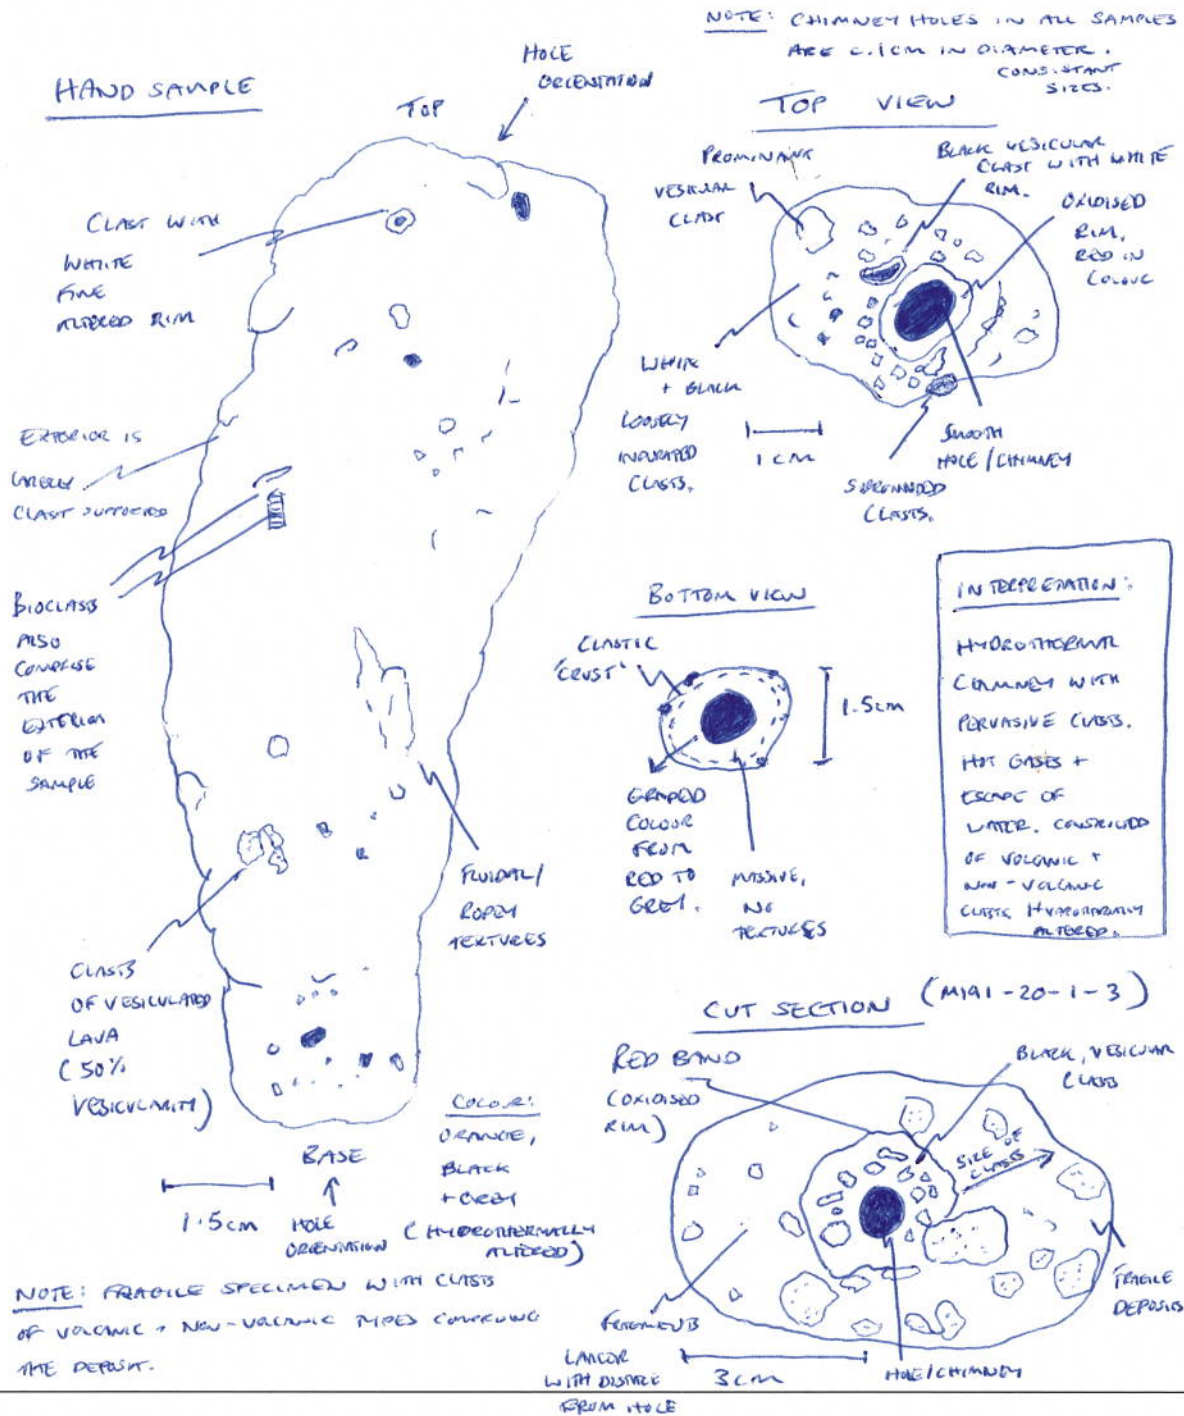 NOTE: CHIMNEY HOLES IN ALL SAMPLES
ARE C.1CM IN DIAMETER.
CONSISTANT
SIZES.
HAND SAMPLE
TOP
HOLE
ORIENTATION
CLAST WITH
WHITE
FINE
ALTERED RIM
EXTERIOR IS
LARGELY
CLAST SUPPORTED
BIOCLASTS
ALSO
COMPRISE
THE
EXTERIOR
OF THE
SAMPLE
CLASTS
OF VESICULATED
LAVA
(50%
VESICULARITY)
FLUIDAL/
ROPEY
TEXTURES
BASE
1.5cm
HOLE
ORIENTATION
COLOUR:
ORANGE,
BLACK
+ GREY
(HYDROTHERMALLY
ALTERED)
NOTE: FRAGILE SPECIMEN WITH CLASTS
OF VOLCANIC + NON-VOLCANIC TYPES COMPRISING
THE DEPOSIT.
TOP VIEW
PROMINANT
VESICULAR
CLAST
BLACK VESICULAR
CLAST WITH WHITE
RIM.
OXIDISED
RIM,
RED IN
COLOUR
WHITE
+ BLACK
LOOSELY
INDURATED
CLASTS.
1cm
SURROUNDED
CLASTS.
SMOOTH
HOLE/CHIMNEY
BOTTOM VIEW
CLASTIC
'CRUST'
1.5cm
GRADED
COLOUR
FROM
RED TO
GREY.
MASSIVE,
NO
TEXTURES
INTERPRETATION:
HYDROTHERMAL
CHIMNEY WITH
PERVASIVE CLASTS.
HOT GASES +
ESCAPE OF
WATER.
OF VOLCANIC +
NON-VOLCANIC
CLASTS HYDROTHERMALLY
ALTERED.
CUT SECTION (M191-20-1-3)
RED BAND
(OXIDISED
RIM)
BLACK, VESICULAR
CLASTS
SIZE OF
CLASTS
FRAGILE
DEPOSITS
FRAGMENTS
LARGER
WITH DISTANCE
FROM HOLE
3cm
HOLE/CHIMNEY